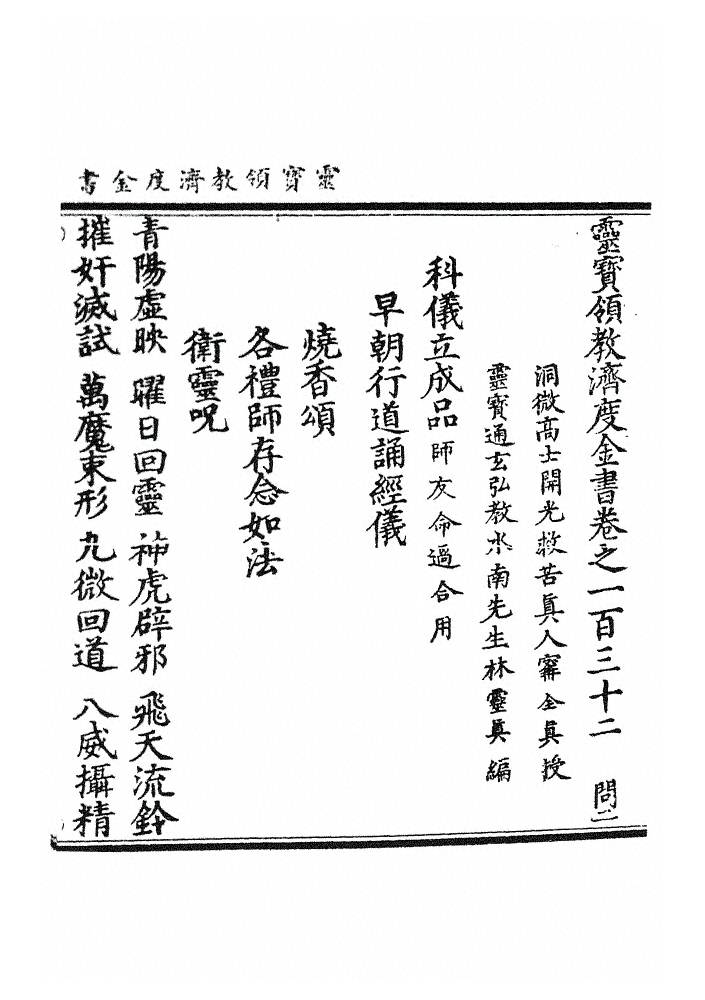 靈寶領教濟度金書
靈寶領教濟度金書卷之一百三十二 問二
洞微高士開光救苦眞人寗全眞授
靈寶通玄弘教水南先生林靈眞編
科儀立成品師友命過合用
早朝行道誦經儀
燒香頌
各禮師存念如法
衛靈呪
青陽虛映 曜日回靈 神虎辟邪 飛天流鈴
摧奸滅試 萬魔束形 九微回道 八威攝精